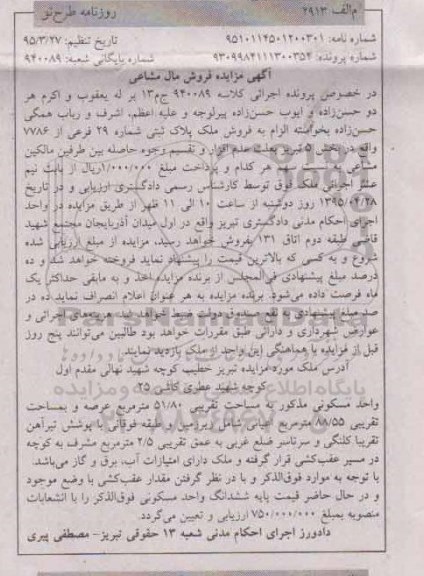 م الف ۲۹۱۳ روزنامه طرح نو
شماره نامه: ۹۵۱۰۱۱۴۵۰۱۲۰۰۳۰۱ تاریخ تنظیم: ۹۵/۳/۲۷
شماره پرونده: ۹۳۰۹۹۸۴۱۱۱۳۰۰۳۵۴ شماره بایگانی شعبه: ۹۴۰۰۸۹
آگهی مزایده فروش مال مشاعی
در خصوص پرونده اجرائی کلاسه ۹۴۰۰۸۹ ج م۱۳ بر له یعقوب و اکرم هر
دو حسن‌زاده و ایوب حسن‌زاده پیرلوجه و علیه اعظم، اشرف و رباب همگی
حسن‌زاده بخواسته الزام به فروش ملک پلاک ثبتی شماره ۲۹ فرعی از ۷۷۸۶
واقع در بخش ۵ تبریز بعلت عدم افراز و تقسیم وجوه حاصله بین طرفین مالکین
مشاعی به نسبت سهم هر کدام و پرداخت مبلغ ۱/۰۰۰/۰۰۰ریال از بابت نیم
عشر اجرائی ملک فوق توسط کارشناس رسمی دادگستری ارزیابی و در تاریخ
۱۳۹۵/۰۴/۲۸ روز دوشنبه از ساعت ۱۰ الی ۱۱ ظهر از طریق مزایده در واحد
اجرای احکام مدنی دادگستری تبریز واقع در اول میدان آذربایجان مجتمع شهید
قاضی طبقه دوم اتاق ۱۳۱ بفروش خواهد رسید، مزایده از مبلغ ارزیابی شده
شروع و به کسی که بالاترین قیمت را پیشنهاد نماید فروخته خواهد شد و ده
درصد مبلغ پیشنهادی فی‌المجلس از برنده مزایده اخذ و به مابقی حداکثر یک
ماه فرصت داده می‌شود. برنده مزایده به هر عنوان اعلام انصراف نماید ده در
صد مبلغ پیشنهادی به نفع صندوق دولت ضبط خواهد شد. هزینه‌های اجرائی و
عوارض شهرداری و دارائی طبق مقررات خواهد بود طالبین می‌توانند پنج روز
قبل از مزایده با هماهنگی این واحد از ملک بازدید نمایند.
آدرس ملک مورد مزایده تبریز خطیب کوچه شهید نهالی مقدم اول
کوچه شهید عطری کاشی ۲۵
واحد مسکونی مذکور به مساحت تقریبی ۵۱/۸۰ مترمربع عرصه و بمساحت
تقریبی ۸۸/۵۵ مترمربع اعیانی شامل زیرزمین و طبقه فوقانی با پوشش تیرآهن
تقریبا کلنگی و سرتاسر ضلع غربی به عمق تقریبی ۲/۵ مترمربع مشرف به کوچه
در مسیر عقب‌کشی قرار گرفته و ملک دارای امتیازات آب، برق و گاز می‌باشد.
با توجه به موارد فوق‌الذکر و با در نظر گرفتن مقدار عقب‌کشی با وضع موجود
و در حال حاضر قیمت پایه ششدانگ واحد مسکونی فوق‌الذکر را با انشعابات
منصوبه بمبلغ ۷۵۰/۰۰۰/۰۰۰ ارزیابی و تعیین می‌گردد.
دادورز اجرای احکام مدنی شعبه ۱۳ حقوقی تبریز– مصطفی پیری